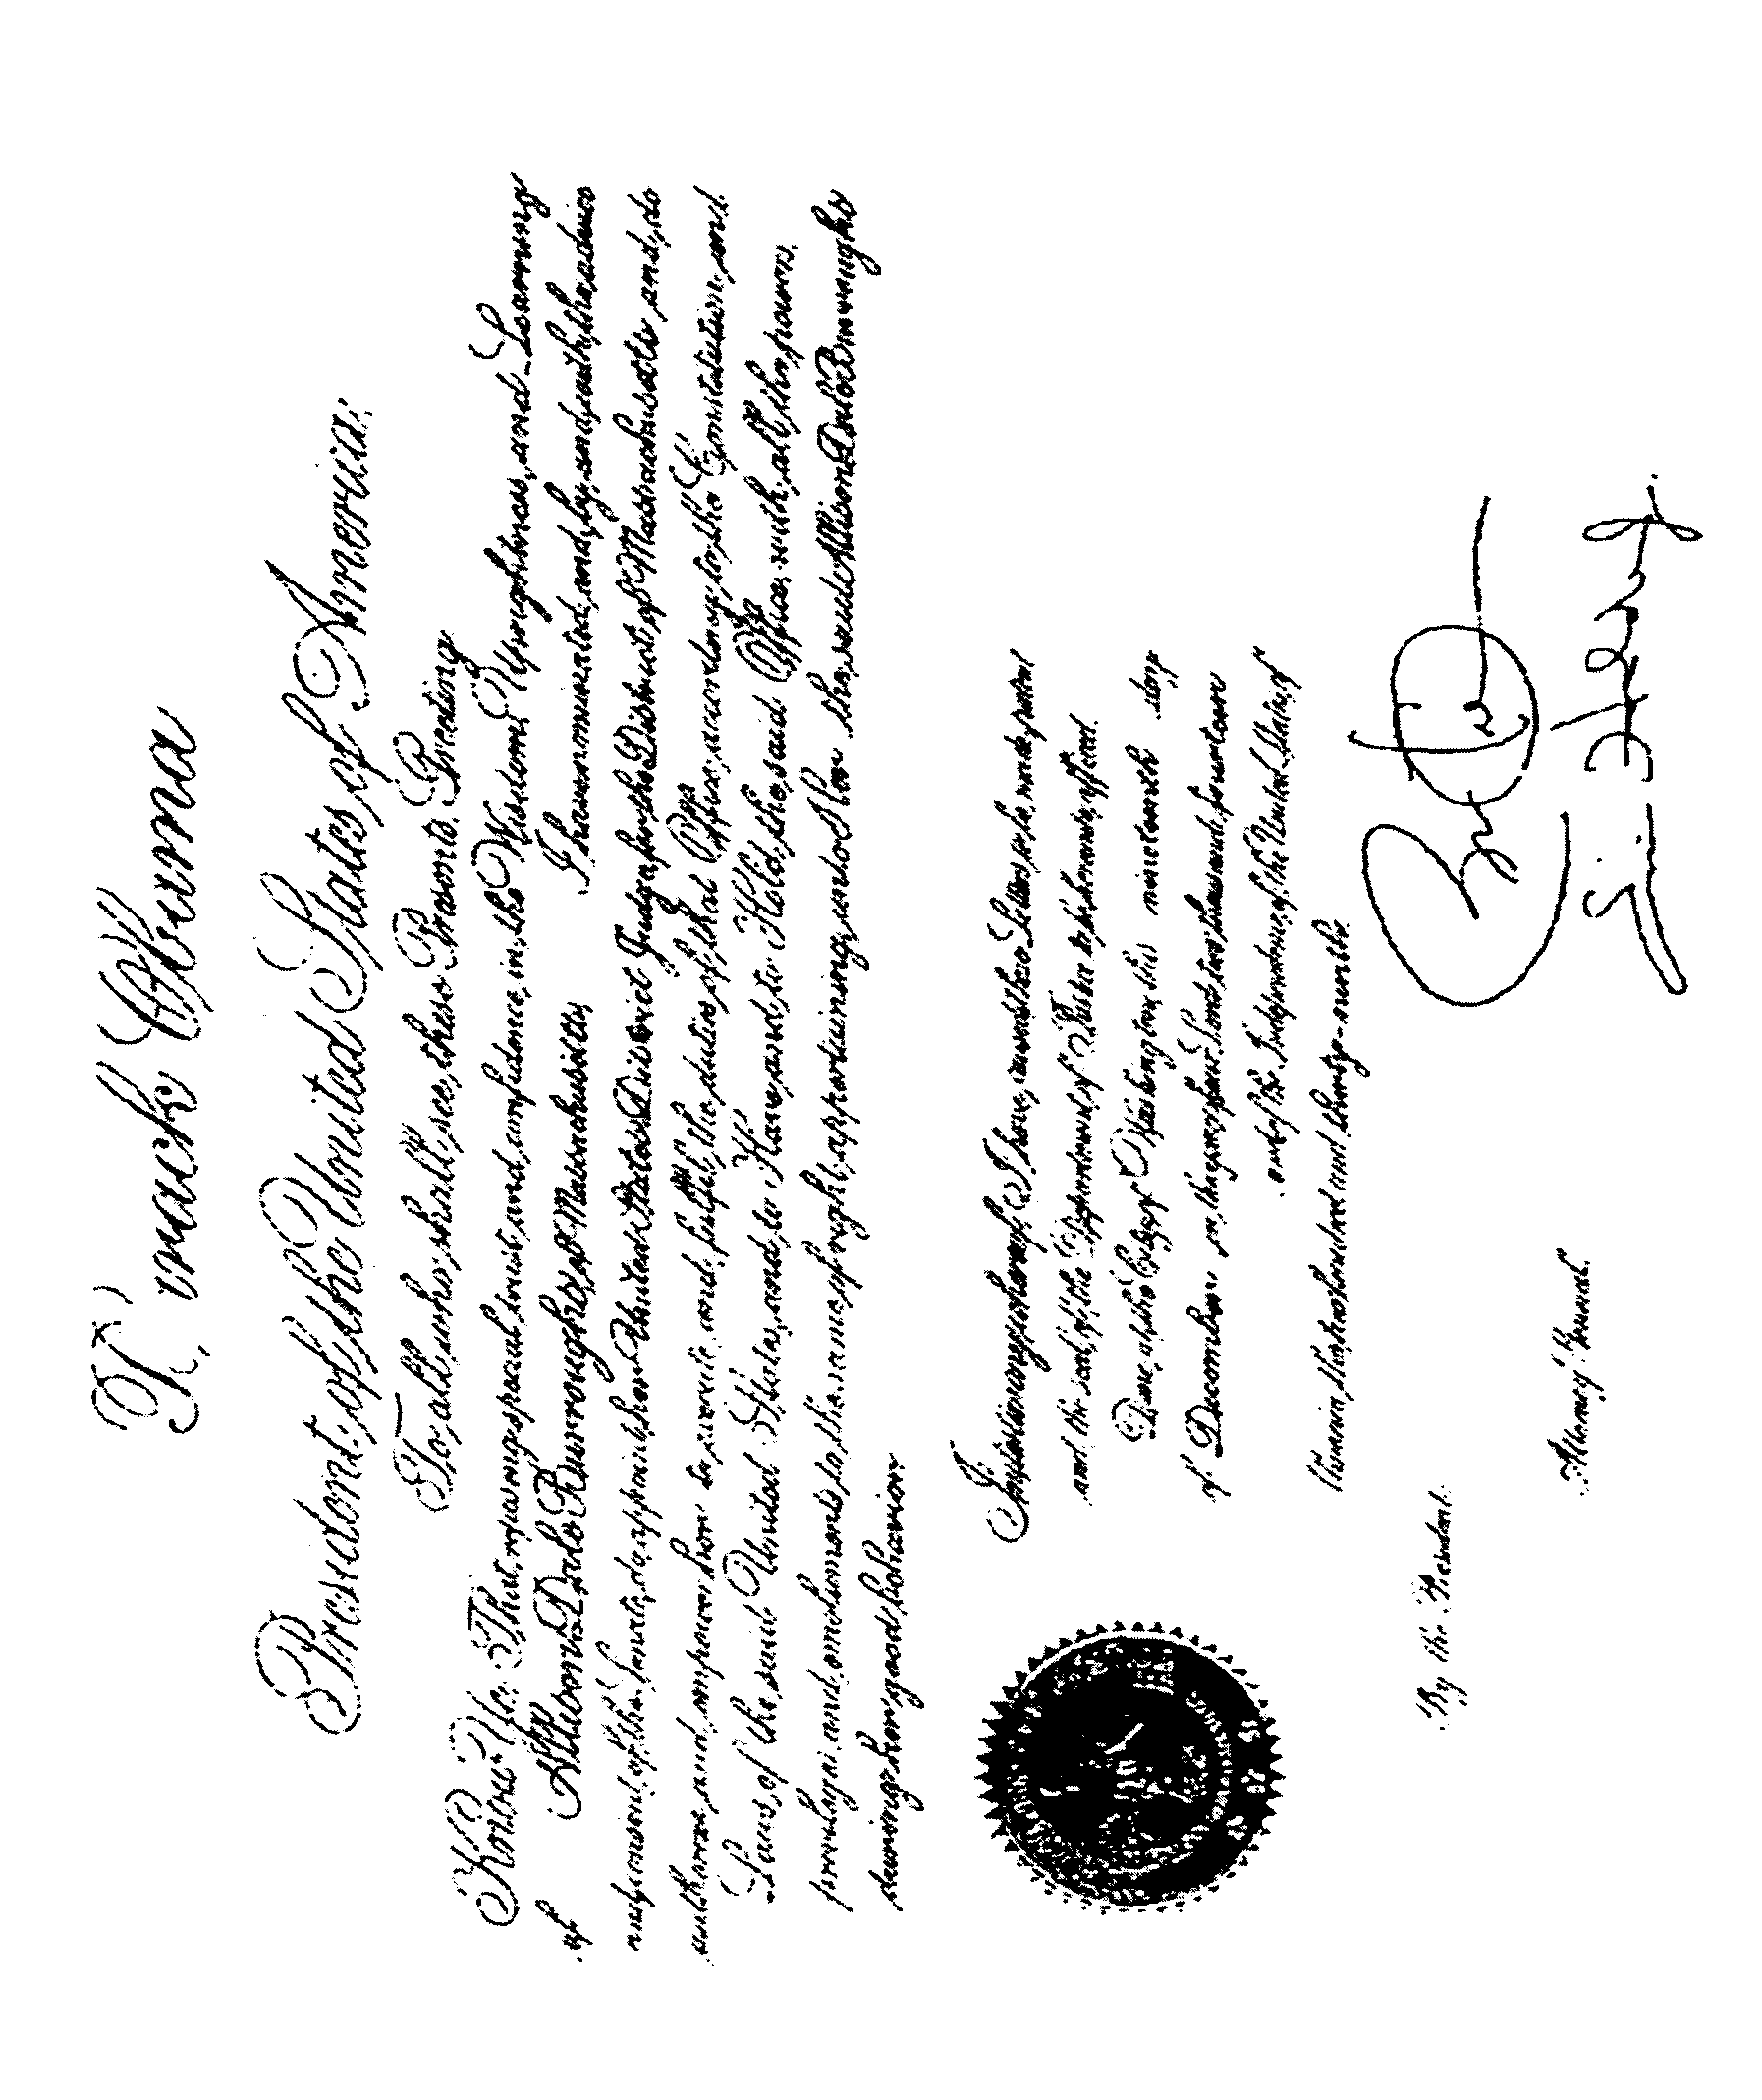 Barack Obama
President of the United States of America.
To all who shall see these Presents, Greeting:
Know Ye: That, reposing special trust and confidence in the Wisdom, Uprightness, and Learning
of Allison Dale Burroughs, of Massachusetts I have nominated, and, by and with the advice
and consent of the Senate, do appoint her United States District Judge for the District of Massachusetts and do
authorize and empower her to execute and fulfil the duties of that Office according to the Constitution and
Laws of the said United States, and to Have and to Hold the said Office, with all the powers,
privileges and emoluments to the same of right appertaining, unto Her the said Allison Dale Burroughs
during her good behavior.
In testimony whereof, I have caused these Letters to be made patent
and the seal of the Department of Justice to be hereunto affixed.
Done at the City of Washington this nineteenth day
of December in the year of our Lord two thousand fourteen
and of the Independence of the United States of
America the two hundred and thirty-ninth.
By the President:
Attorney General.